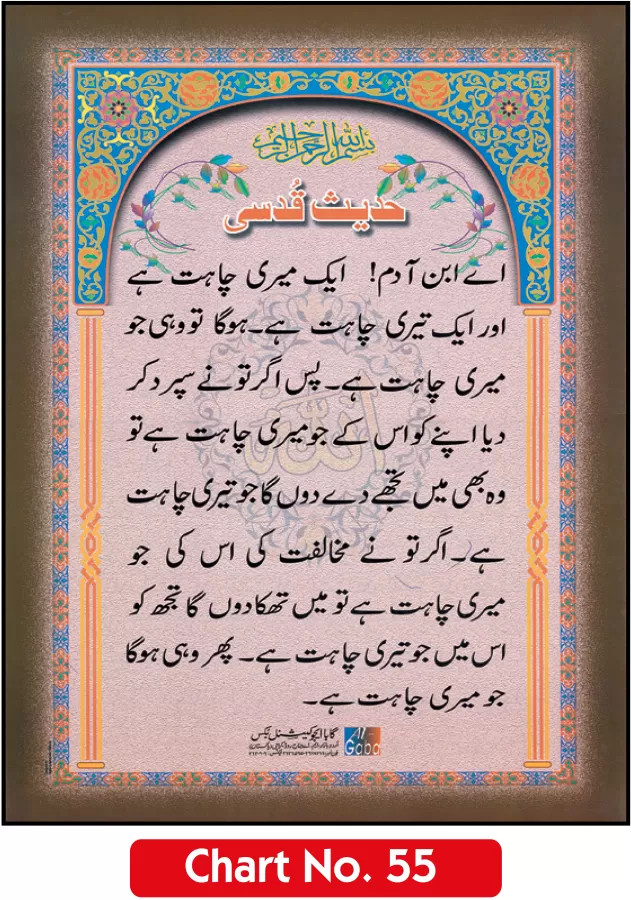 بسم الله الرحمن الرحيم
حدیث قُدسی
اے ابن آدم! ایک میری چاہت ہے
اور ایک تیری چاہت ہے۔ ہوگا تو وہی جو
میری چاہت ہے۔ پس اگر تو نے سپرد کر
دیا اپنے کو اس کے جو میری چاہت ہے تو
وہ بھی میں تجھے دے دوں گا جو تیری چاہت
ہے۔ اگر تو نے مخالفت کی اس کی جو
میری چاہت ہے تو میں تھکا دوں گا تجھ کو
اس میں جو تیری چاہت ہے۔ پھر وہی ہوگا
جو میری چاہت ہے۔
الله
گابا ایجوکیشنل بکس
Gaba
Chart No. 55